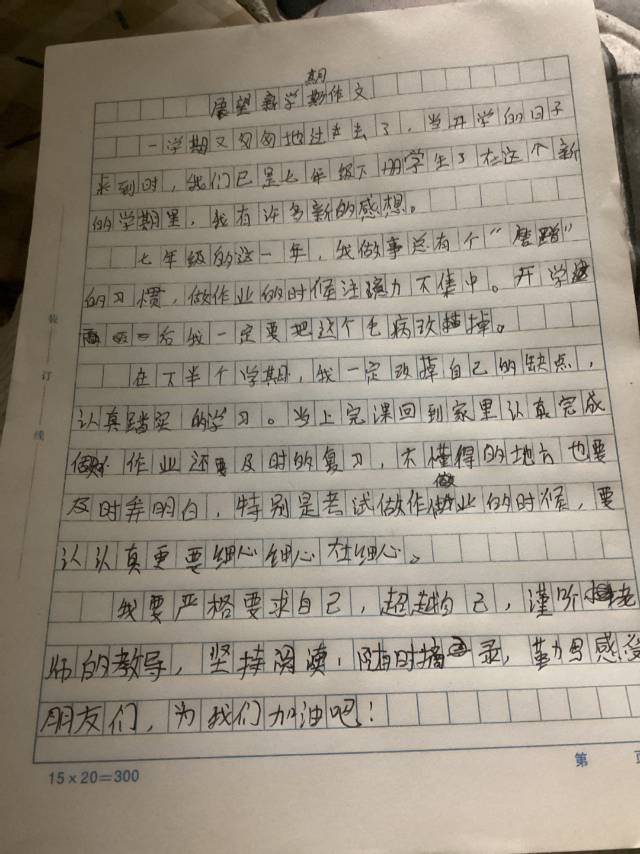 展望新学期作文
期
一学期又匆匆地过去了，当开学的日子
来到时，我们已是七年级下册学生了在这个新
的学期里，我有许多新的感想。
七年级的这一年，我做事总有个“磨蹭”
的习惯，做作业的时候注意力不集中。开学
后我一定要把这个毛病改掉。
在下半个学期，我一定改掉自己的缺点，
认真踏实的学习。当上完课回到家里认真完成
作业还要及时的复习，不懂得的地方也要
及时弄明白，特别是考试做作业的时候，要
做
认认真更要细心细心在细心。
我要严格要求自己，超越自己，谨听老
师的教导，坚持阅读，随时摘录，勤写感受
朋友们，为我们加油吧！
15×20=300
第 页
装
订
线